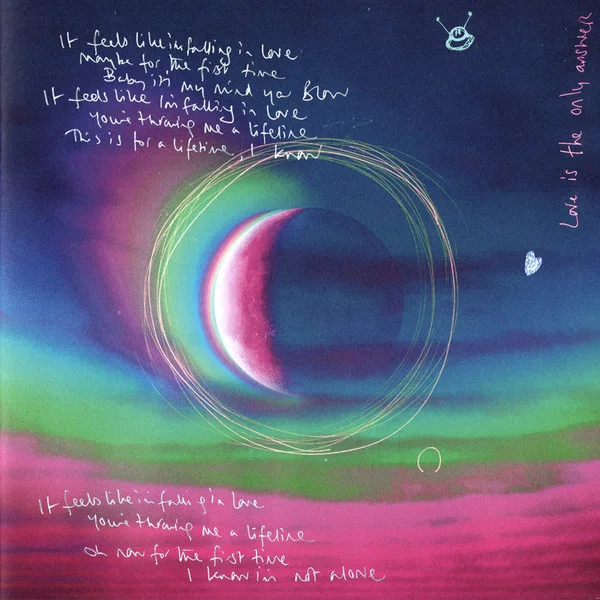 It feels like i'm falling in love
maybe for the first time
Baby it's my mind you Blow
It feels like I'm falling in love
You're throwing me a lifeline
This is for a lifetime, I know
Love is the only answer
It feels like i'm falling in love
You're throwing me a lifeline
oh now for the first time
I know i'm not alone